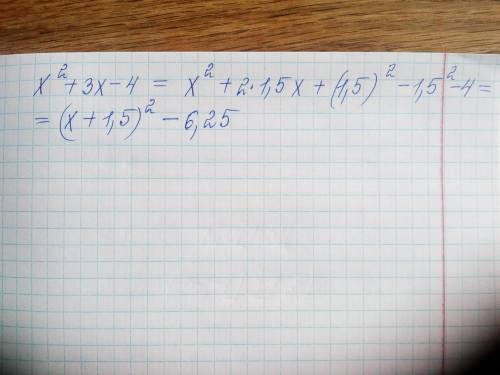 x² + 3x - 4 = x² + 2·1,5x + (1,5)² - 1,5² - 4 =
= (x + 1,5)² - 6,25